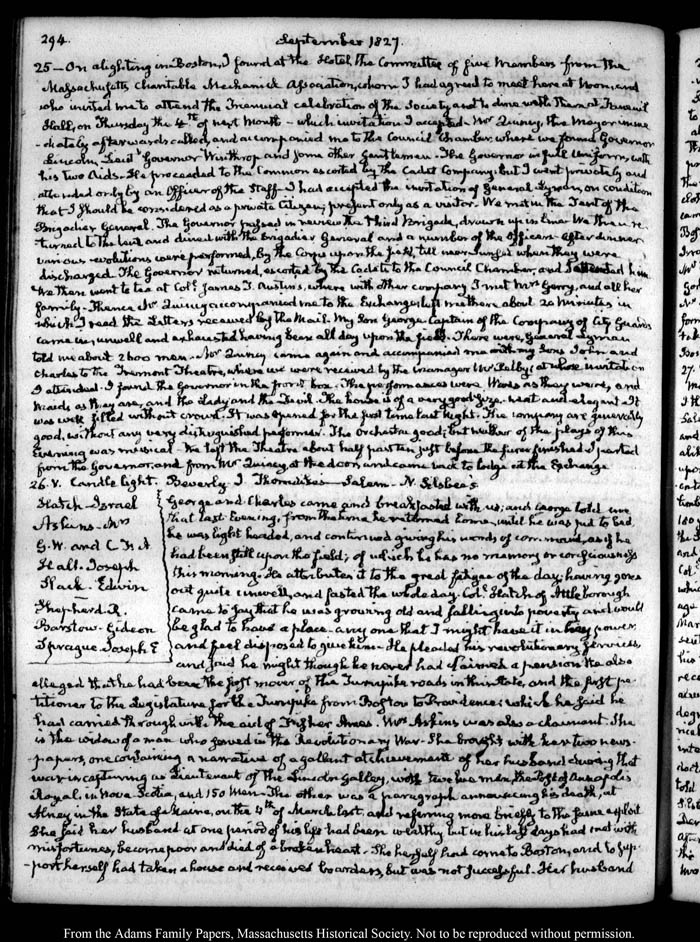 294.
September 1827.
25 — On alighting in Boston, I found at the Hotel, the Committee of five Members from the
Massachusetts Charitable Mechanick Association, whom I had agreed to meet here at Noon, and
who invited me to attend the Triennial celebration of the Society, and to dine with them at Faneuil
Hall, on Thursday the 4th of next Month — which invitation I accepted. Mr Quincy, the Mayor imme
-diately afterwards called, and accompanied me to the Council Chamber, where we found Governor
Lincoln, Lieut Governor Winthrop and some other Gentlemen. The Governor in full Uniform, with
his two Aids. He proceeded to the Common escorted by the Cadet Company; but I went privately and
attended only by an Officer of the Staff. I had accepted the invitation of General Lyman, on condition
that I should be considered as a private Citizen; present only as a visitor. We met in the Tent of the
Brigadier General. The Governor passed in review the Third Brigade, drawn up in Line. We then re
-turned to the Tent and dined with the Brigadier General and a number of the Officers. After dinner
various evolutions were performed, by the Corps upon the field, till near Sunset when they were
discharged. The Governor returned, escorted by the Cadets to the Council Chamber, and I attended him.
We then went to tea at Coll. James T. Austin's, where with other company I met Mrs Gerry, and all her
family. Thence Mr Quincy accompanied me to the Exchange; left me there about 20 Minutes in
which I read the Letters received by the Mail. My Son George, Captain of the Company of City Guards
came in, unwell and exhausted having been all day upon the field. There were, General Lyman
told me about 2600 men. Mr Quincy came again and accompanied me with my Sons John and
Charles to the Tremont Theatre, where we were received by the Manager Mr Pelby; at whose invitation
I attended. I found the Governor in the front box. The performances were Wives as they were, and
Maids as they are, and the Lady and the Devil. The house is of a very good size, neat and elegant. It
was well filled without crowd. It was opened for the first time last Night. The company are generally
good, without any very distinguished performer. The Orchestra good; but neither of the plays of this
Evening was musical. We left the Theatre about half past ten, just before the farce finished. I parted
from the Governor, and from Mr Quincy, at the door, and came back to lodge at the Exchange
26. V. Candle light. Beverly I. Thorndike's — Salem. N. Silsbee's
Hatch — Israel
Askins — Mrs
G. W. and C. F. A
Hall. Joseph
Slack. Edwin
Shepherd. R.
Barstow. Gideon
Sprague. Joseph E
George and Charles came and breakfasted with us; and George told me
that last Evening, from the time he returned home, until he was put to bed,
he was light headed, and continued giving his words of command, as if he
had been still upon the field; of which he has no memory or consciousness
this morning. He attributes it to the great fatigue of the day; having gone
out quite unwell, and fasted the whole day. Coll. Hatch of Attleborough
came to say that he was growing old and falling into poverty, and would
be glad to have a place — any one that I might have it in my power
and feel disposed to give him. He pleaded his revolutionary services
and said he might though he never had claimed a pension. He also
alleged that he had been the first mover of the Turnpike roads in this State, and the first pe-
titioner to the Legislature, for the Turnpike from Boston to Providence; which he said he
had carried through with the aid of Fisher Ames. Mrs Askins was also a claimant. She
is the widow of a man who served in the Revolutionary War. She brought with her two news-
papers, one containing a narrative of a gallant atchievement of her husband during that
war in capturing as Lieutenant of the Lincoln Galley, with twelve men, the Post of Annapolis
Royal, in Nova Scotia, and 150 Men. The other was a paragraph announcing his death, at
in the State of Maine, on the 4th of March last, and referring more briefly to the same exploit
She said her husband at one period of his life had been wealthy but in his last days had met with
misfortunes, become poor and died of a broken heart. She herself had come to Boston, and to sup-
-port herself had taken a house and received boarders, but was not successful. Her husband
From the Adams Family Papers, Massachusetts Historical Society. Not to be reproduced without permission.